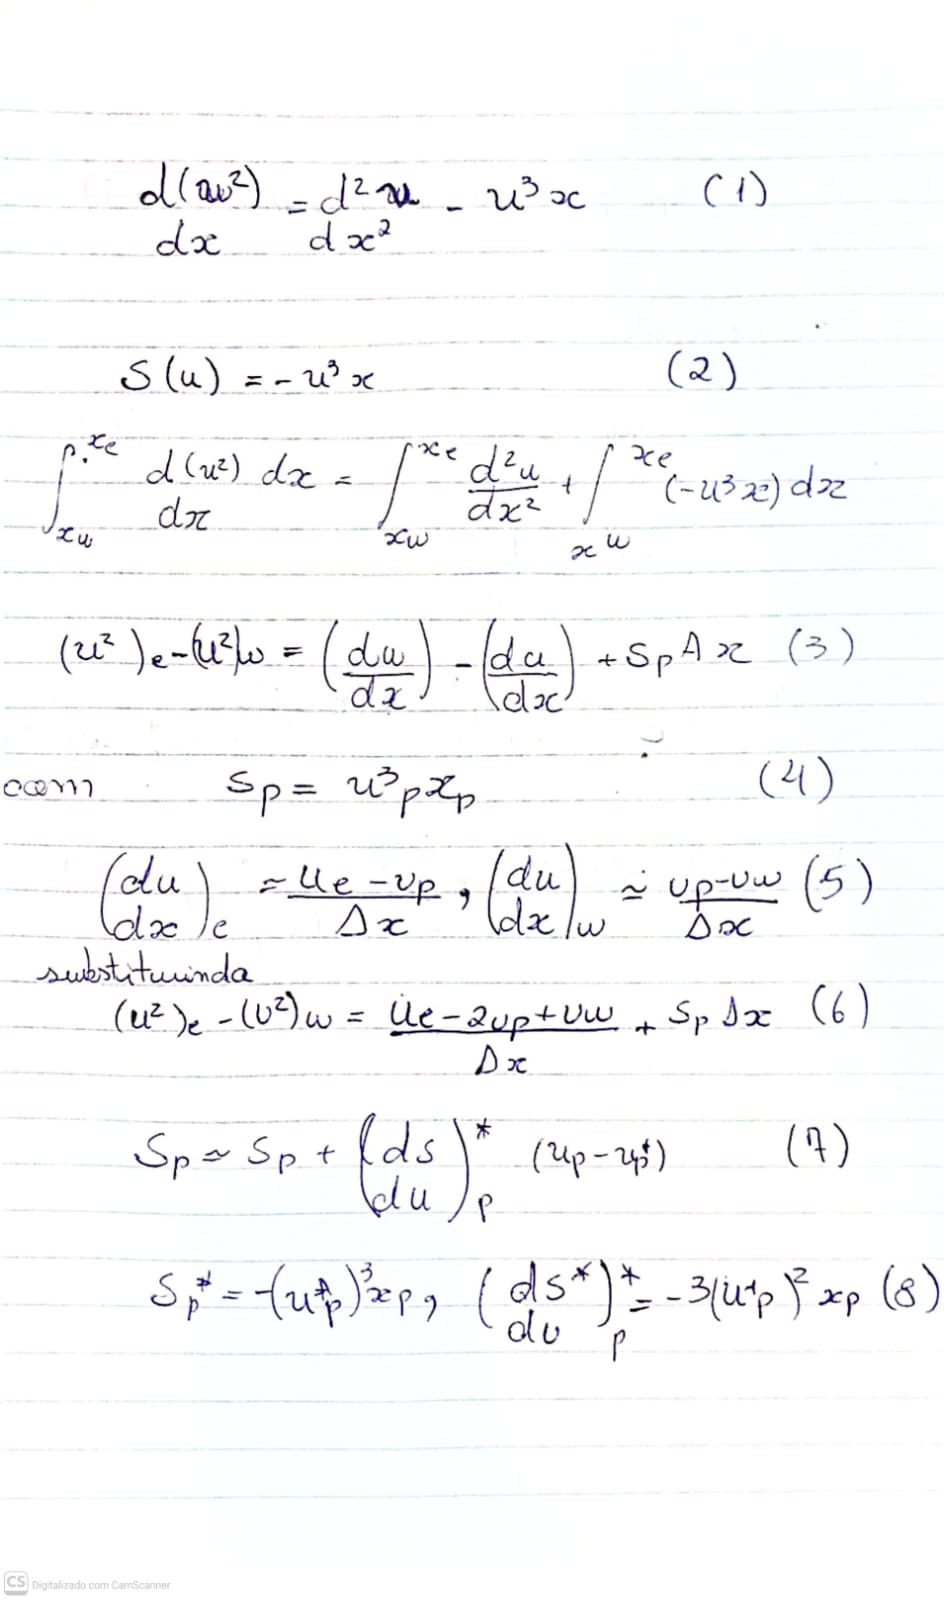 d(u²)/dx = d²u/dx² - u³x (1)
S(u) = - u³x (2)
∫_{xw}^{xe} d(u²)/dx dx = ∫_{xw}^{xe} d²u/dx² + ∫_{xw}^{xe} (-u³x) dx
(u²)e - (u²)w = (du/dx) - (du/dx) + Sp Δx (3)
com Sp = u³p xp (4)
(du/dx)e ≈ (ue - up)/Δx, (du/dx)w ≈ (up - uw)/Δx (5)
substituindo
(u²)e - (u²)w = (ue - 2up + uw)/Δx + Sp Δx (6)
Sp ≈ Sp + (ds/du)*p (up - up*) (7)
Sp* = -(u*p)³xp, (ds*/du)*p = -3(u*p)² xp (8)
CS Digitalizado com CamScanner